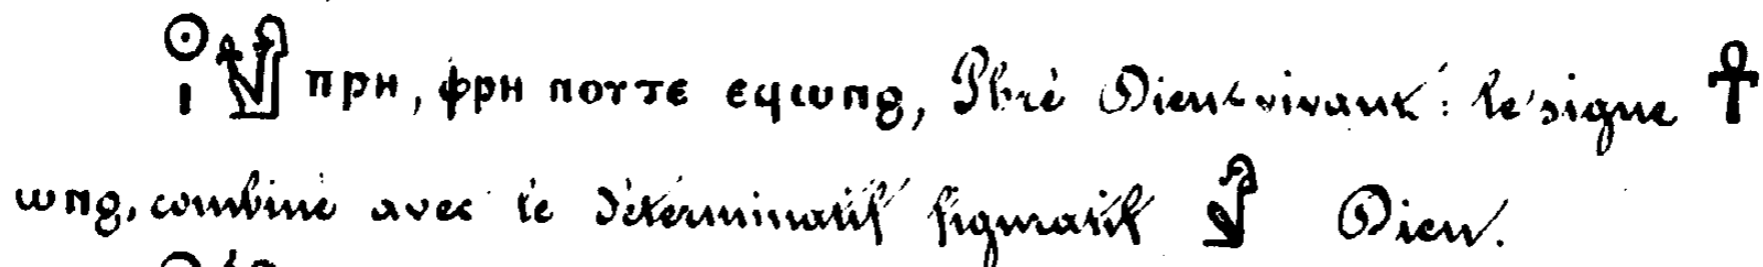 𓇳𓏤 𓀭 ⲡⲣⲏ, ⲫⲣⲏ ⲛⲟⲩⲧⲉ ⲉϥⲱⲛϩ, Phré Dieu vivant: le signe 𓋹
ⲱⲛϩ, combiné avec le déterminatif figuratif 𓀭 Dieu.